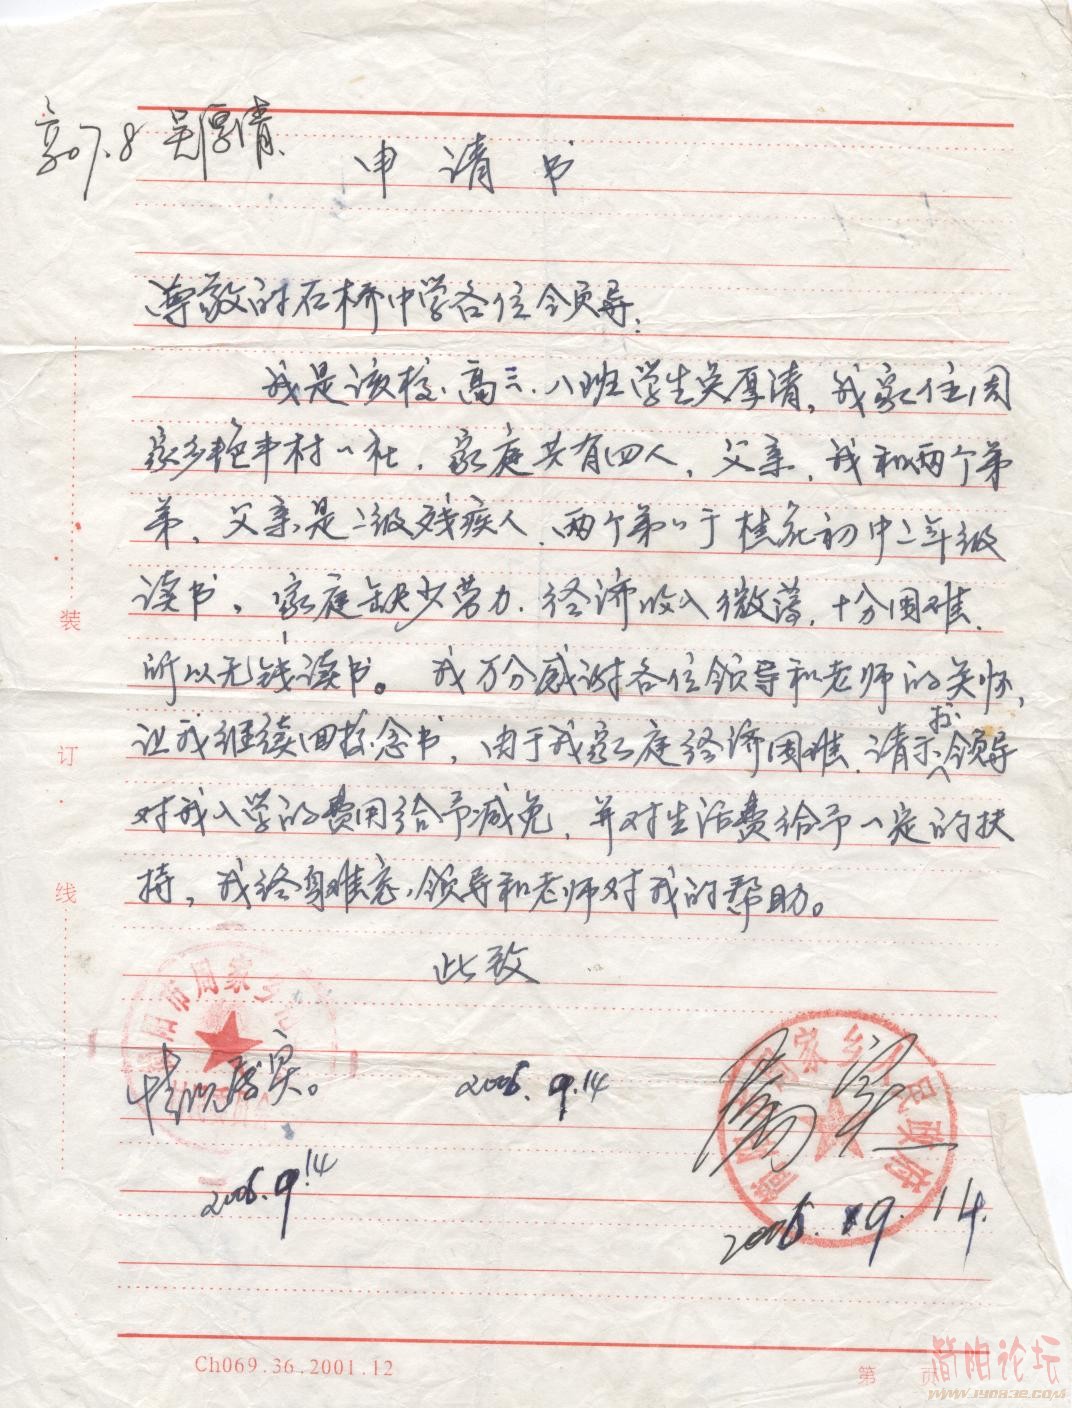 高07.8 吴厚清
申请书
尊敬的石桥中学各位领导:
我是该校高三.八班学生吴厚清,我家住周
家乡艳丰村一社.家庭共有四人,父亲,我和两个弟
弟,父亲是二级残疾人.两个弟弟于桂花初中二年级
读书。家庭缺少劳力.经济收入微薄.十分困难.
所以无钱读书。我万分感谢各位领导和老师的关怀,
让我继续回校念书,由于我家庭经济困难.请示
领导
对我入学的费用给予减免,并对生活费给予一定的扶
持,我终身难忘领导和老师对我的帮助。
此致
阳市周家乡
情况属实。
2006.9.14
家乡人民政府
属实
2006.9.14
2006.9.14.
装
订
线
Ch069.36.2001.12
第 页
简阳论坛